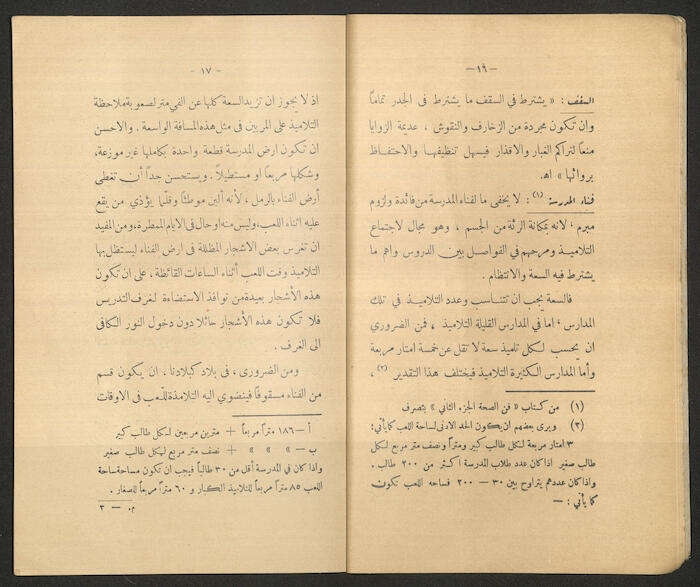 — ١٦ —
السقف : « يشترط في السقف ما يشترط في الجدر تماماً
وان تكون مجردة من الزخارف والنقوش ، عديمة الزوايا
منعاً لتراكم الغبار والاقذار فيسهل تنظيفها والاحتفاظ
بروائها » اهـ
فناء المدرسة (١) : لا يخفى ما لفناء المدرسة من فائدة ولزوم
مبرم ، لانه بمكانة الرئة من الجسم ، وهو مجال لاجتماع
التلاميذ ومرحهم في الفواصل بين الدروس واهم ما
يشترط فيه السعة والانتظام .
فالسعة يجب ان تتناسب وعدد التلاميذ في تلك
المدارس ؛ اما في المدارس القليلة التلاميذ ، فمن الضروري
ان يحسب لكل تلميذ سعة لا تقل عن خمسة امتار مربعة
وأما المدارس الكثيرة التلاميذ فيختلف هذا التقدير (٢) ،
(١) من كتاب « فن الصحة الجزء الثاني » بتصرف
(٢) ويرى بعضهم ان يكون الحد الادنى لساحة اللعب كما يأتي :
٣ امتار مربعة لكل طالب كبير ومتراً ونصف متر مربع لكل
طالب صغير اذا كان عدد طلاب المدرسة اكثر من ٢٠٠ طالب .
واذا كان عددهم يتراوح بين ٣٠ — ٢٠٠ فساحة اللعب تكون
كما يأتي : —
- ١٧ -
اذ لا يجوز ان تزيد السعة كلها عن الفي متر لصعوبة ملاحظة
التلاميذ على المربين في مثل هذه المسافة الواسعة . والاحسن
ان تكون ارض المدرسة قطعة واحدة بكاملها غير موزعة ،
وشكلها مربعاً او مستطيلاً . ويستحسن جداً أن تغطى
أرض الفناء بالرمل ، لأنه ألين موطئاً وقلّما يؤذي من يقع
عليه اثناء اللعب ، وليس منه اوحال في الايام الممطرة ، ومن المفيد
ان تغرس بعض الاشجار المظللة في ارض الفناء ليستظل بها
التلاميذ وقت اللعب أثناء الساعات القائظة ، على ان تكون
هذه الأشجار بعيدة من نوافذ الاستضاءة لغرف التدريس
فلا تكون هذه الأشجار حائلا دون دخول النور الكافي
الى الغرف .
ومن الضرورى ، فى بلاد كبلادنا ، ان يكون قسم
من الفناء مسقوفاً فينضوي اليه التلامذة للّعب فى الاوقات
أ — ١٨٦ متراً مربعاً + مترين مربعين لكل طالب كبير
ب — » » » + نصف متر مربع لكل طالب صغير
واذا كان في المدرسة أقل من ٣٠ طالباً فيجب ان تكون مساحة ساحة
اللعب ٨٥ متراً مربعاً للتلاميذ الكبار و ٦٠ متراً مربعاً للصغار .
م. — ٣